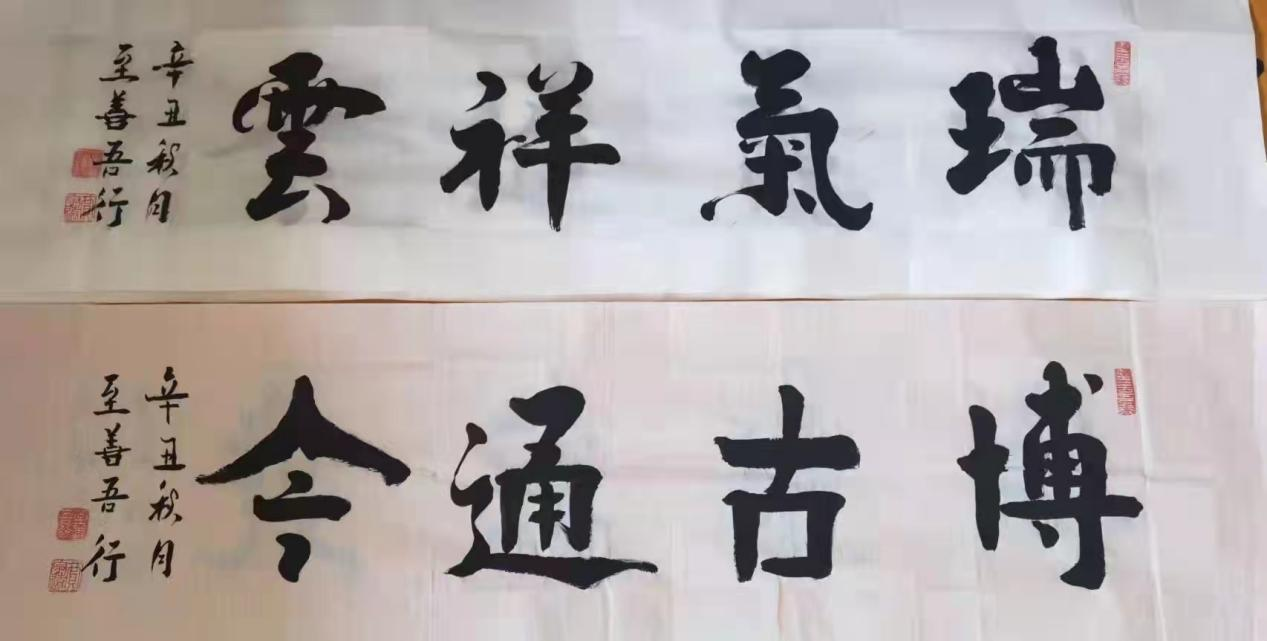 瑞氣祥雲
辛丑秋月
至善吾行
博古通今
辛丑秋月
至善吾行